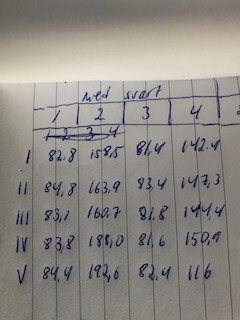 med svart
1 2 3 4
1 2 3 4
I 82,8 158,5 81,4 142.4
II 84,8 163,9 83,4 147,3
III 83,1 160.7 81.8 144,4
IV 83,8 188,0 81,6 150,9
V 84,4 192,6 82,4 116